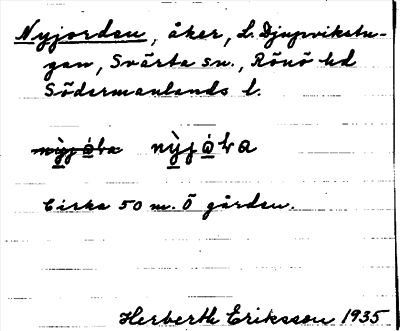 Nyjorden, åker, L. Djupvikstu-
gan, Svärta sn., Rönö hd
Södermanlands l.
nỳjó̠ɽa
Cirka 50 m. Ö gården.
Herberth Eriksson 1935